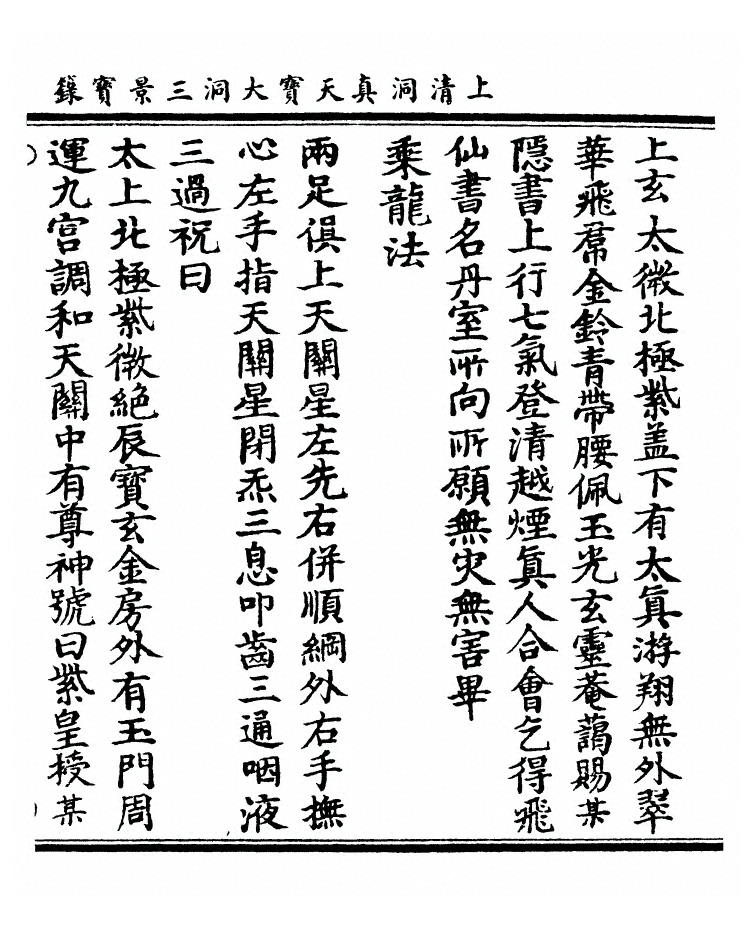 上清洞真天寶大洞三景寶籙
上玄太微北極紫盖下有太真游翔無外翠
華飛帬金鈴青帶腰佩玉光玄靈菴藹賜某
隱書上行七氣登清越煙真人合會乞得飛
仙書名丹室所向所願無灾無害畢
乘龍法
兩足俱上天關星左先右併順綱外右手撫
心左手指天關星閉炁三息叩齒三通咽液
三過祝曰
太上北極紫微絕辰寶玄金房外有玉門周
運九宮調和天關中有尊神號曰紫皇授某